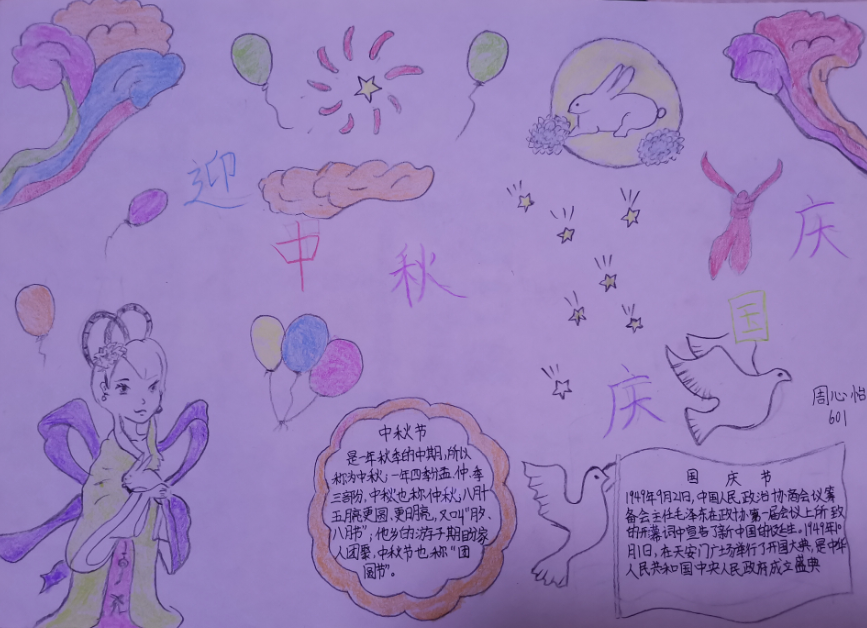 迎
中
秋
庆
国
庆
周心怡
601
中秋节
是一年秋季的中期,所以
称为中秋,一年四季分孟、仲、季
三部分,中秋也称仲秋,八月十
五月亮更圆、更明亮,又叫“月夕、
八月节”;他乡的游子期盼家
人团聚,中秋节也称“团
圆节”。
国 庆 节
1949年9月21日,中国人民政治协商会议筹
备会主任毛泽东在政协第一届会议上所致
的开幕词中宣告了新中国的诞生。1949年10
月1日,在天安门广场举行了开国大典,是中华
人民共和国中央人民政府成立盛典